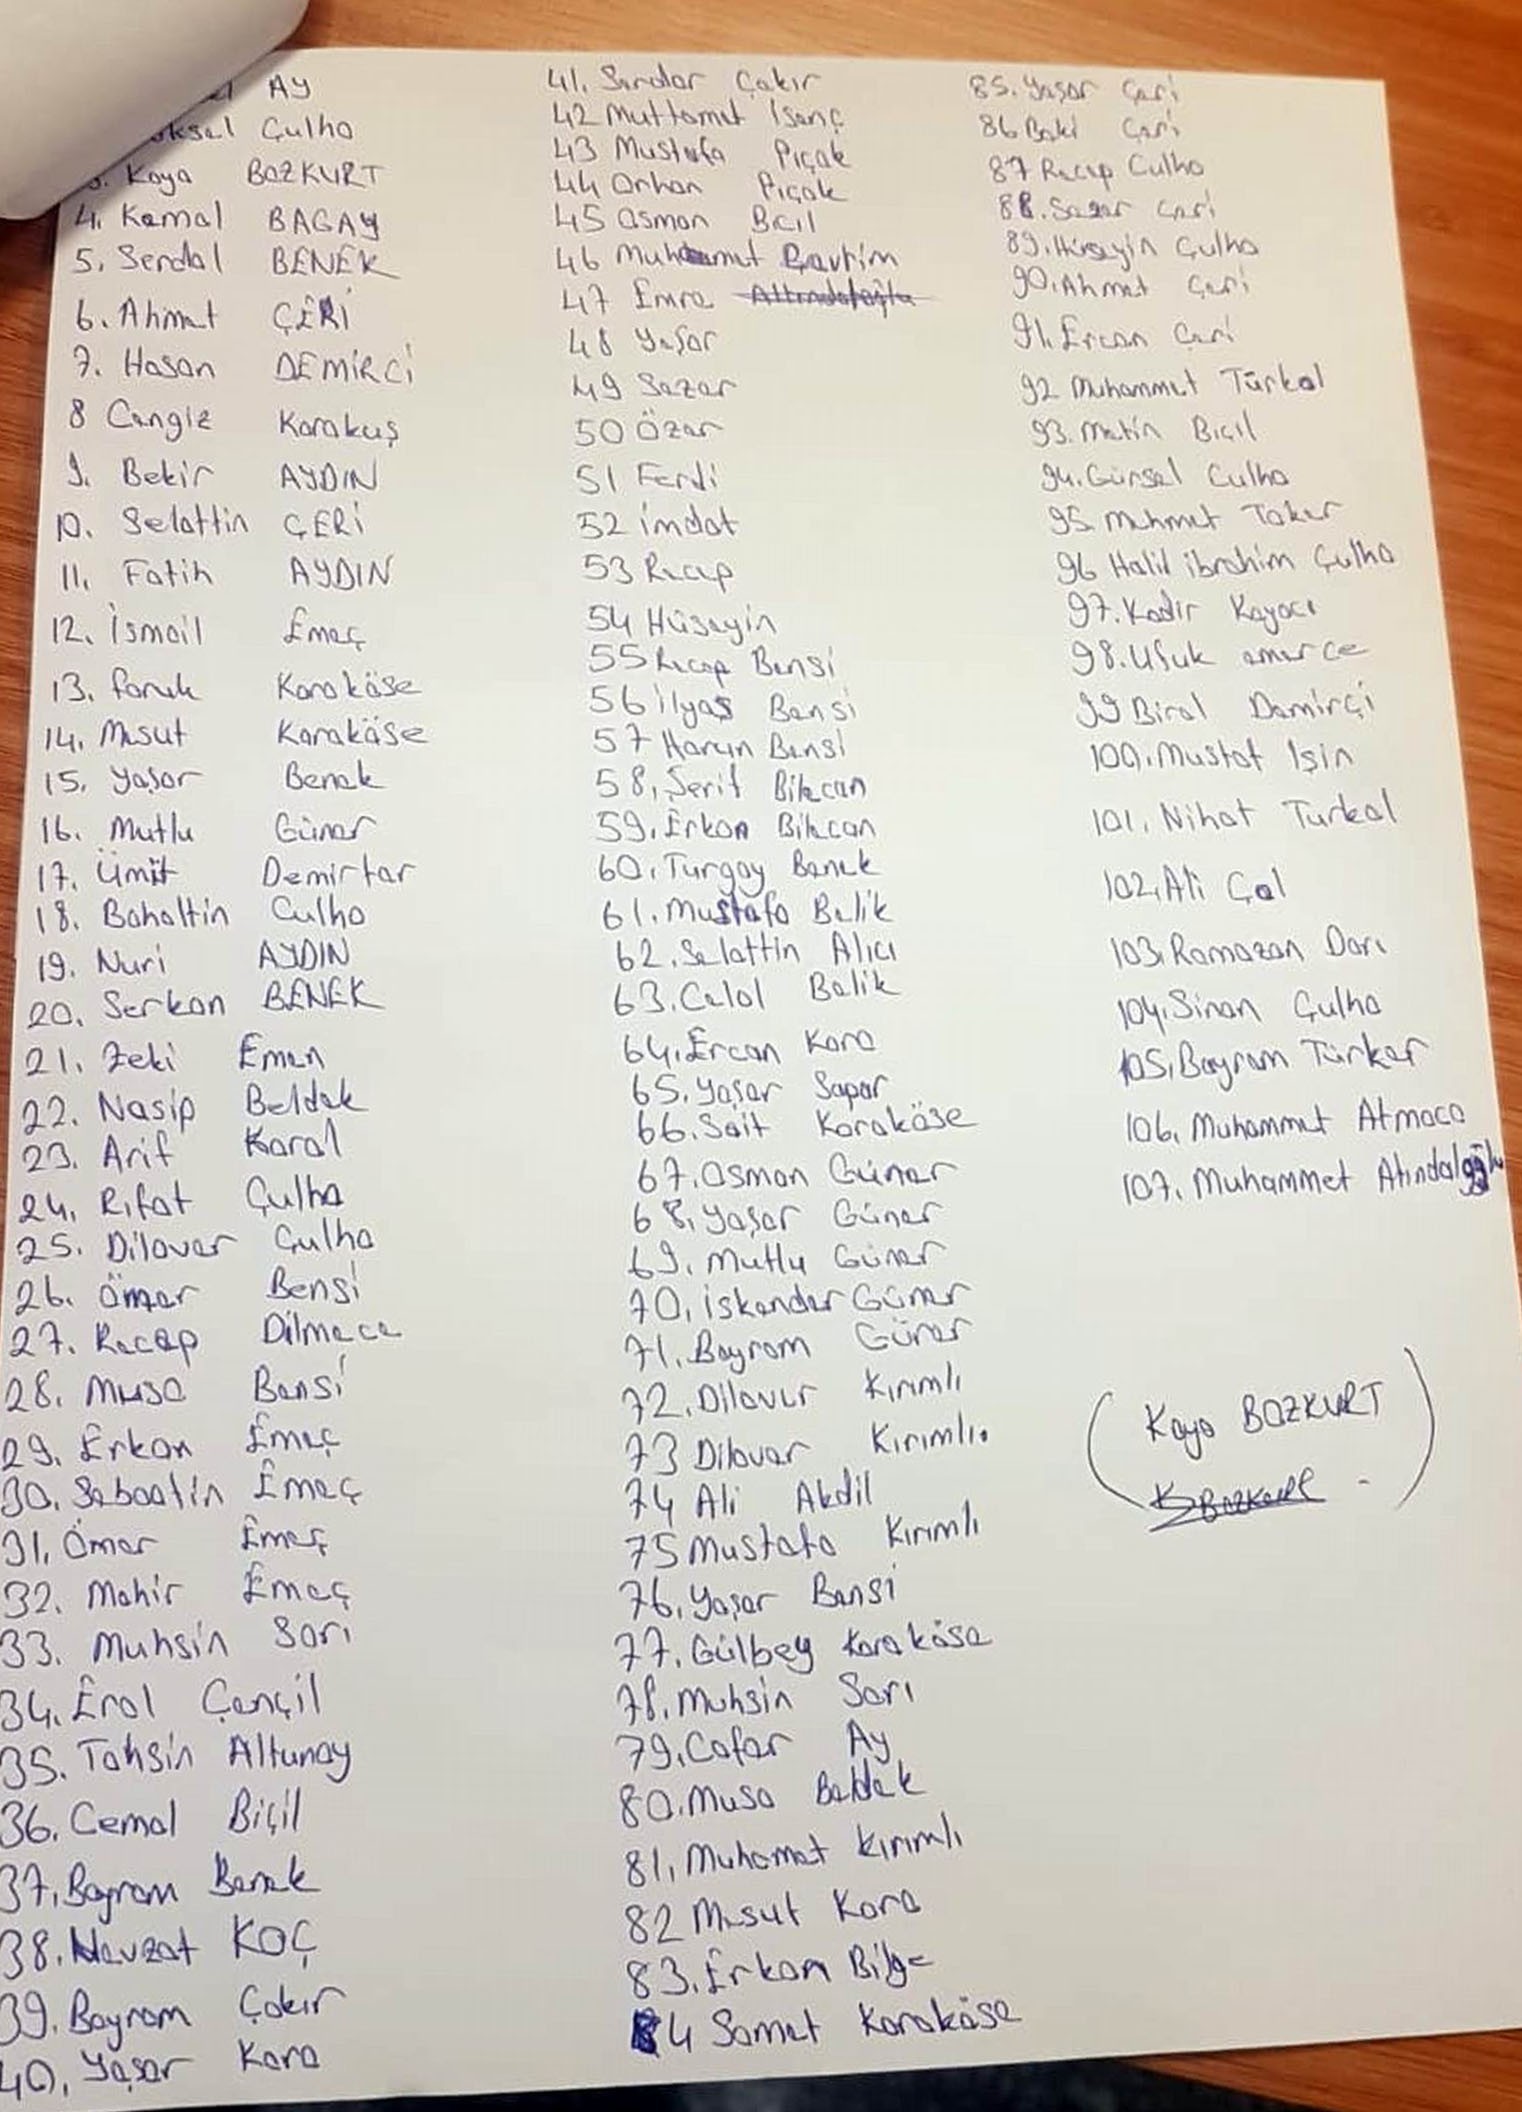 Ay
Çulha
3. Kaya BOZKURT
4. Kemal BAGAY
5. Serdal BENEK
6. Ahmet ÇERİ
7. Hasan DEMİRCİ
8 Cengiz Karakuş
9. Bekir AYDIN
10. Selattin ÇERİ
11. Fatih AYDIN
12. İsmail Emeç
13. faruk Karaköse
14. Mesut Karaköse
15. Yaşar Benek
16. Mutlu Güner
17. Ümit Demirtar
18. Bahattin Culha
19. Nuri AYDIN
20. Serkan BENEK
21. Zeki Emen
22. Nasip Beldek
23. Arif Karal
24. Rıfat Çulha
25. Dilaver Çulha
26. Ömer Bensi
27. Recep Dilmece
28. Musa Bensi
29. Erkan Emeç
30. Sebaatin Emeç
31. Ömer Emeç
32. Mahir Emeç
33. Muhsin Sarı
34. Erol Çençil
35. Tahsin Altunay
36. Cemal Biçil
37. Bayram Benek
38. Nevzat KOÇ
39. Bayram Çakır
40. Yaşar Kara
41. Serdar Çakır
42 Muttamet İsenç
43 Mustafa Pıçak
44 Orhan Pıçak
45 Osman Bıçıl
46 Muhammet
47 Emre
48 Yaşar
49 Sezer
50 Özer
51 Ferdi
52 imdat
53 Recep
54 Hüseyin
55 Recep Bensi
56 ilyas Bensi
57 Harun Bensi
58. Şerif Bikcan
59. Erkan Bikcan
60. Turgay Benek
61. Mustafa Belik
62. Selattin Alıcı
63. Celal Balik
64. Ercan Kara
65. Yaşar Sapar
66. Sait Karaköse
67. Osman Güner
68. Yaşar Güner
69. Mutlu Güner
70. İskender Güner
71. Bayram Güner
72. Dilaver Kırımlı
73 Dilaver Kırımlı.
74 Ali Akdil
75 Mustafa Kırımlı
76. Yaşar Bensi
77. Gülbey Karaköse
78. Muhsin Sarı
79. Cafer Ay
80. Musa Beldek
81. Muhamet Kırımlı
82 Mesut Kara
83. Erkan Bilge
84 Samet Karaköse
85. Yaşar Çeri
86 Baki Çeri
87 Recep Culha
88. Sezer Çeri
89. Hüseyin Çulha
90. Ahmet Çeri
91. Ercan Çeri
92 Muhammet Türkel
93. Metin Bıçıl
94. Gürsel Culha
95. Mehmet Taker
96 Halil ibrahim Çulha
97. Kadir Kayacı
98. Ufuk emerce
99 Birol Demirçi
100. Mustaf Işin
101. Nihat Turkel
102. Ali Çal
103. Ramazan Darı
104. Sinan Çulha
105. Bayram Türker
106. Muhammet Atmaca
107. Muhammet
(Kaya BOZKURT
KBozkurt)